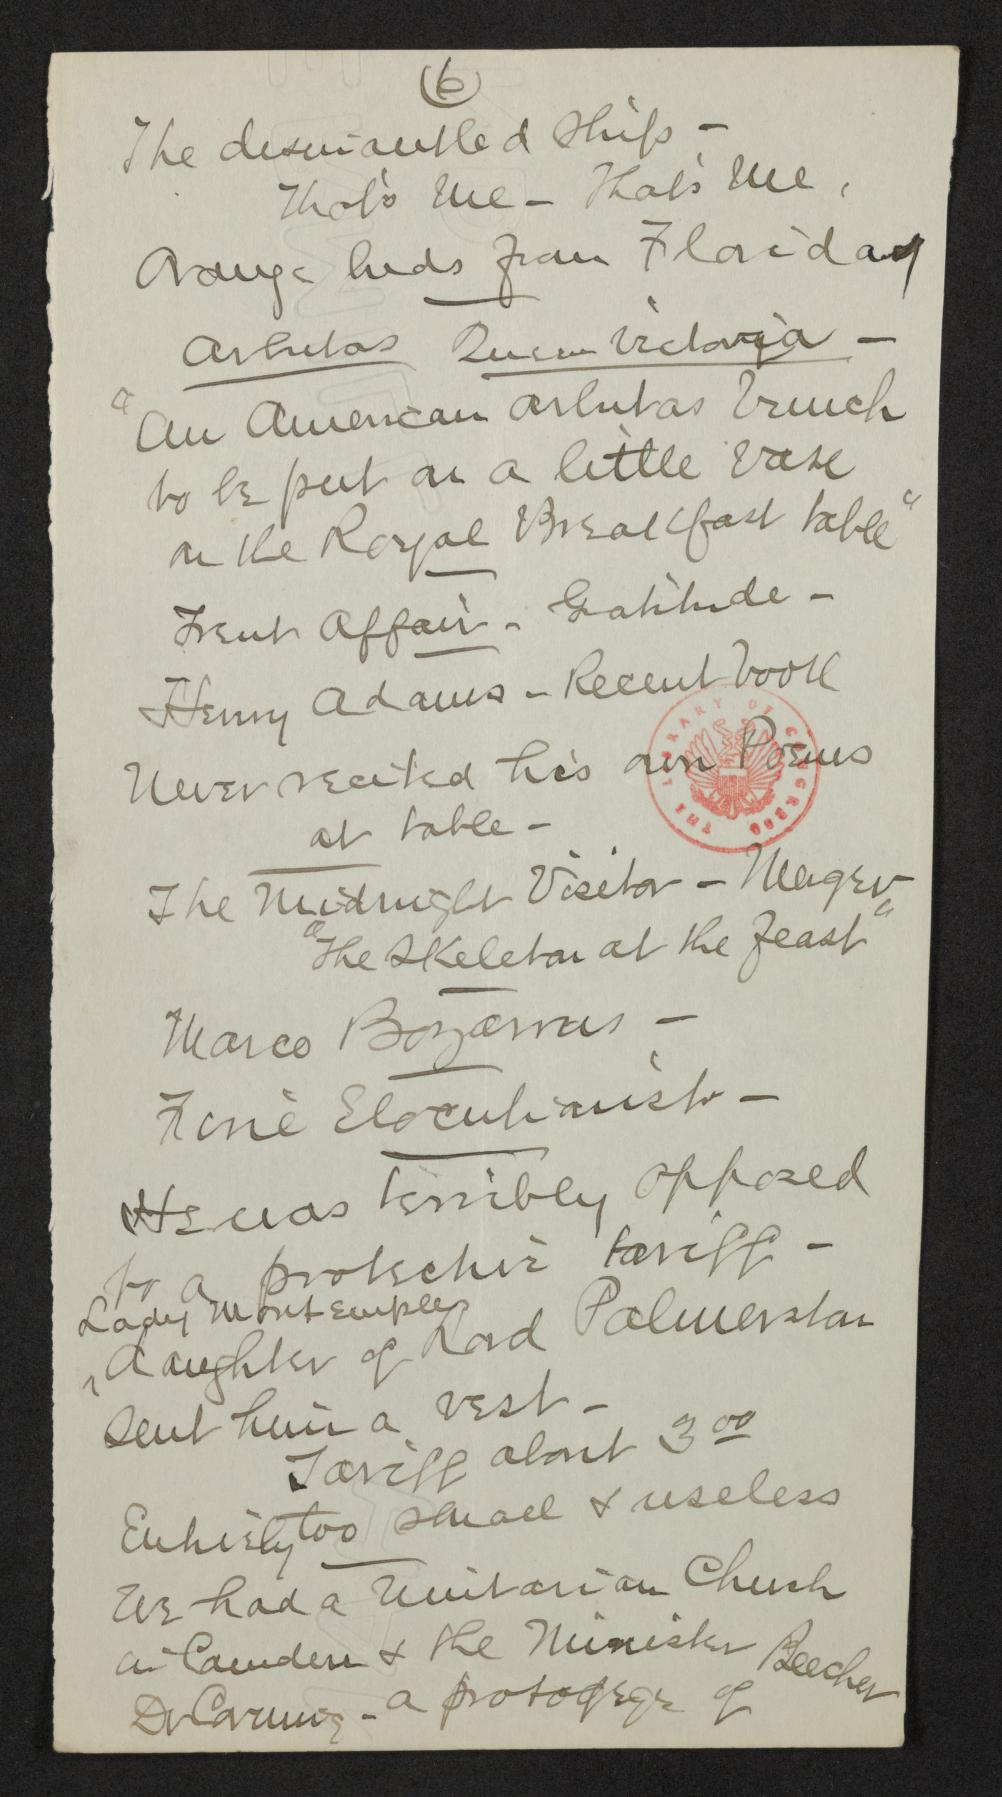 (6)
The dismantled Ship -
That's Me - That's Me,
Orange buds from Florida
Arbutas Queen Victoria -
"An American arbutas bunch
to be put on a little vase
on the Royal Breakfast table"
Trent Affair - Gratitude -
Henry Adams - Recent book
Never recited his own Poems
at table -
The Midnight Visitor - Merger
"The Skeleton at the feast"
Marco Bozarras -
Fine Elocutionist -
He was terribly opposed
to a protective tariff -
Lady Mount Temple
daughter of Lord Palmerston
sent him a vest -
Tariff about 3 00
Entirely too small & useless
We had a Unitarian Church
in Camden & the Minister Beecher
Dr - a protogege of
THE LIBRARY OF CONGRESS